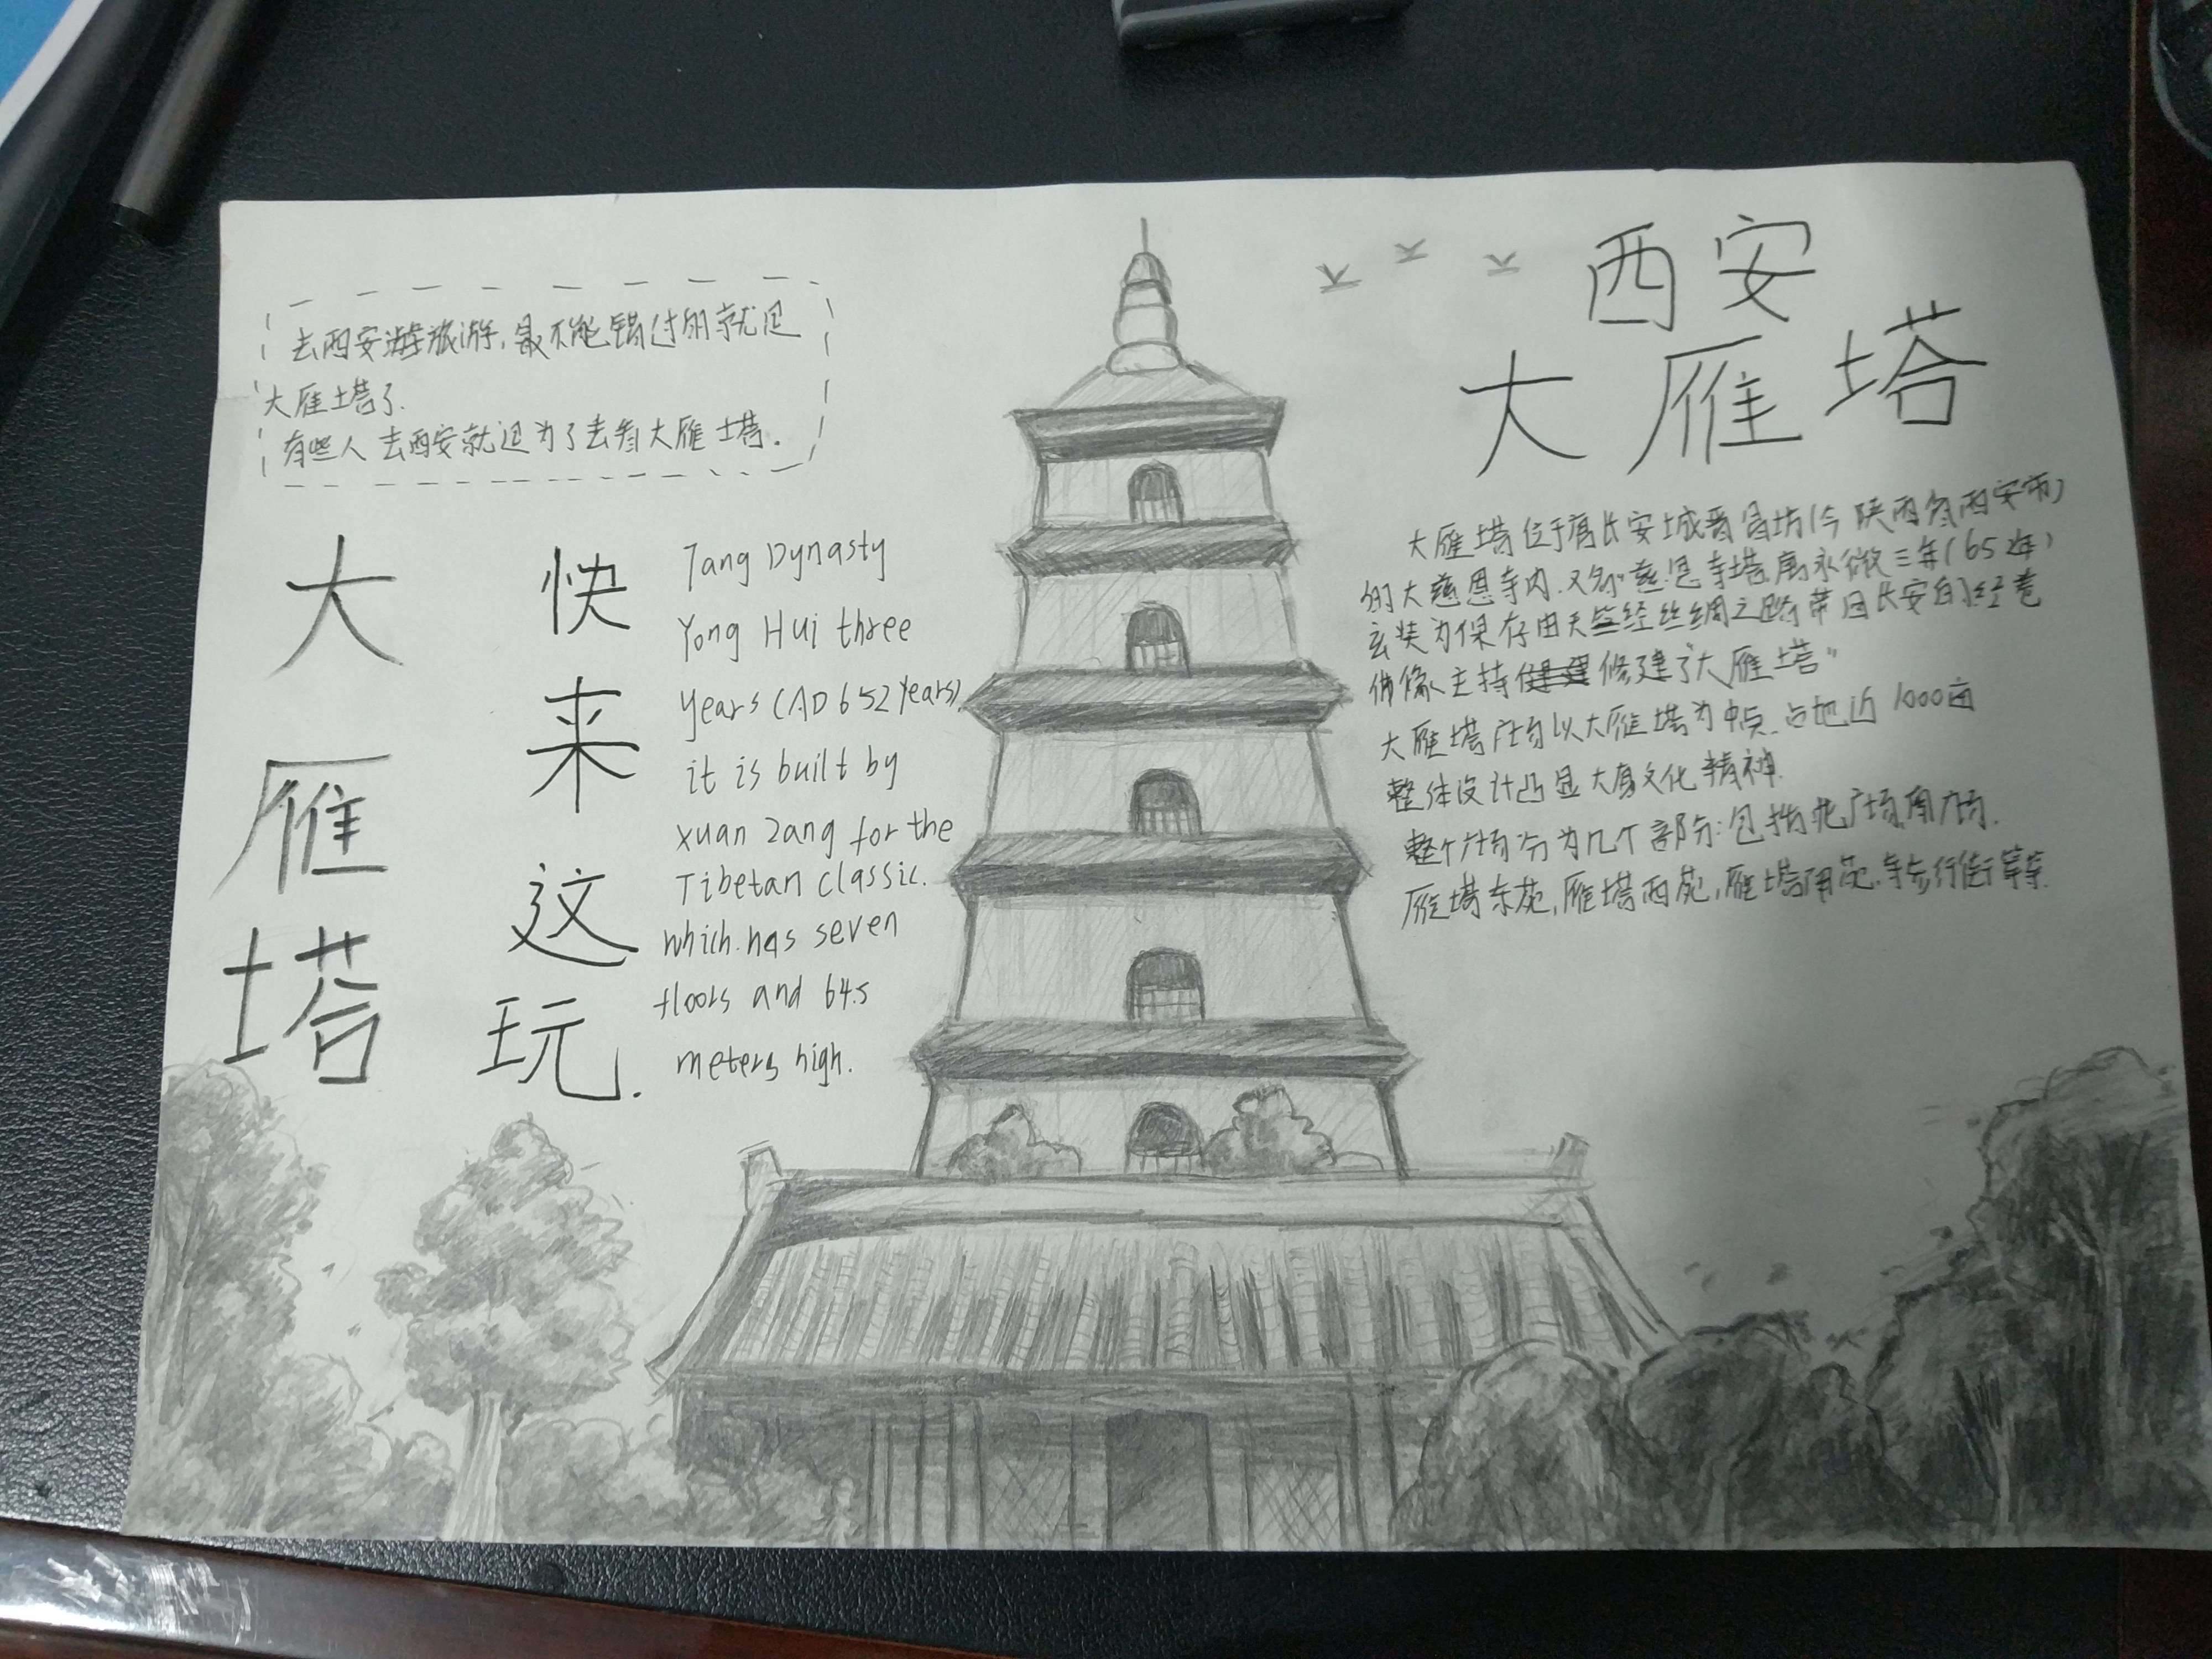 去西安旅游,最不能错过的就是
大雁塔了.
有些人去西安就是为了去看大雁塔.
大雁塔
快来这玩.
Tang Dynasty
Yong Hui three
years (AD 652 years).
it is built by
xuan zang for the
Tibetan classic.
which.has seven
floors and 64.5
meters high.
西安
大雁塔
大雁塔位于唐长安城晋昌坊(今陕西省西安市)
的大慈恩寺内.又名"慈恩寺塔.唐永徽三年(652年)
玄奘为保存由天竺经丝绸之路带回长安的经卷
佛像主持修建了"大雁塔"
大雁塔广场以大雁塔为中点.占地近1000亩
整体设计凸显大唐文化精神.
整个广场分为几个部分:包括北广场,南广场.
雁塔东苑,雁塔西苑,雁塔南苑.步行街等等.